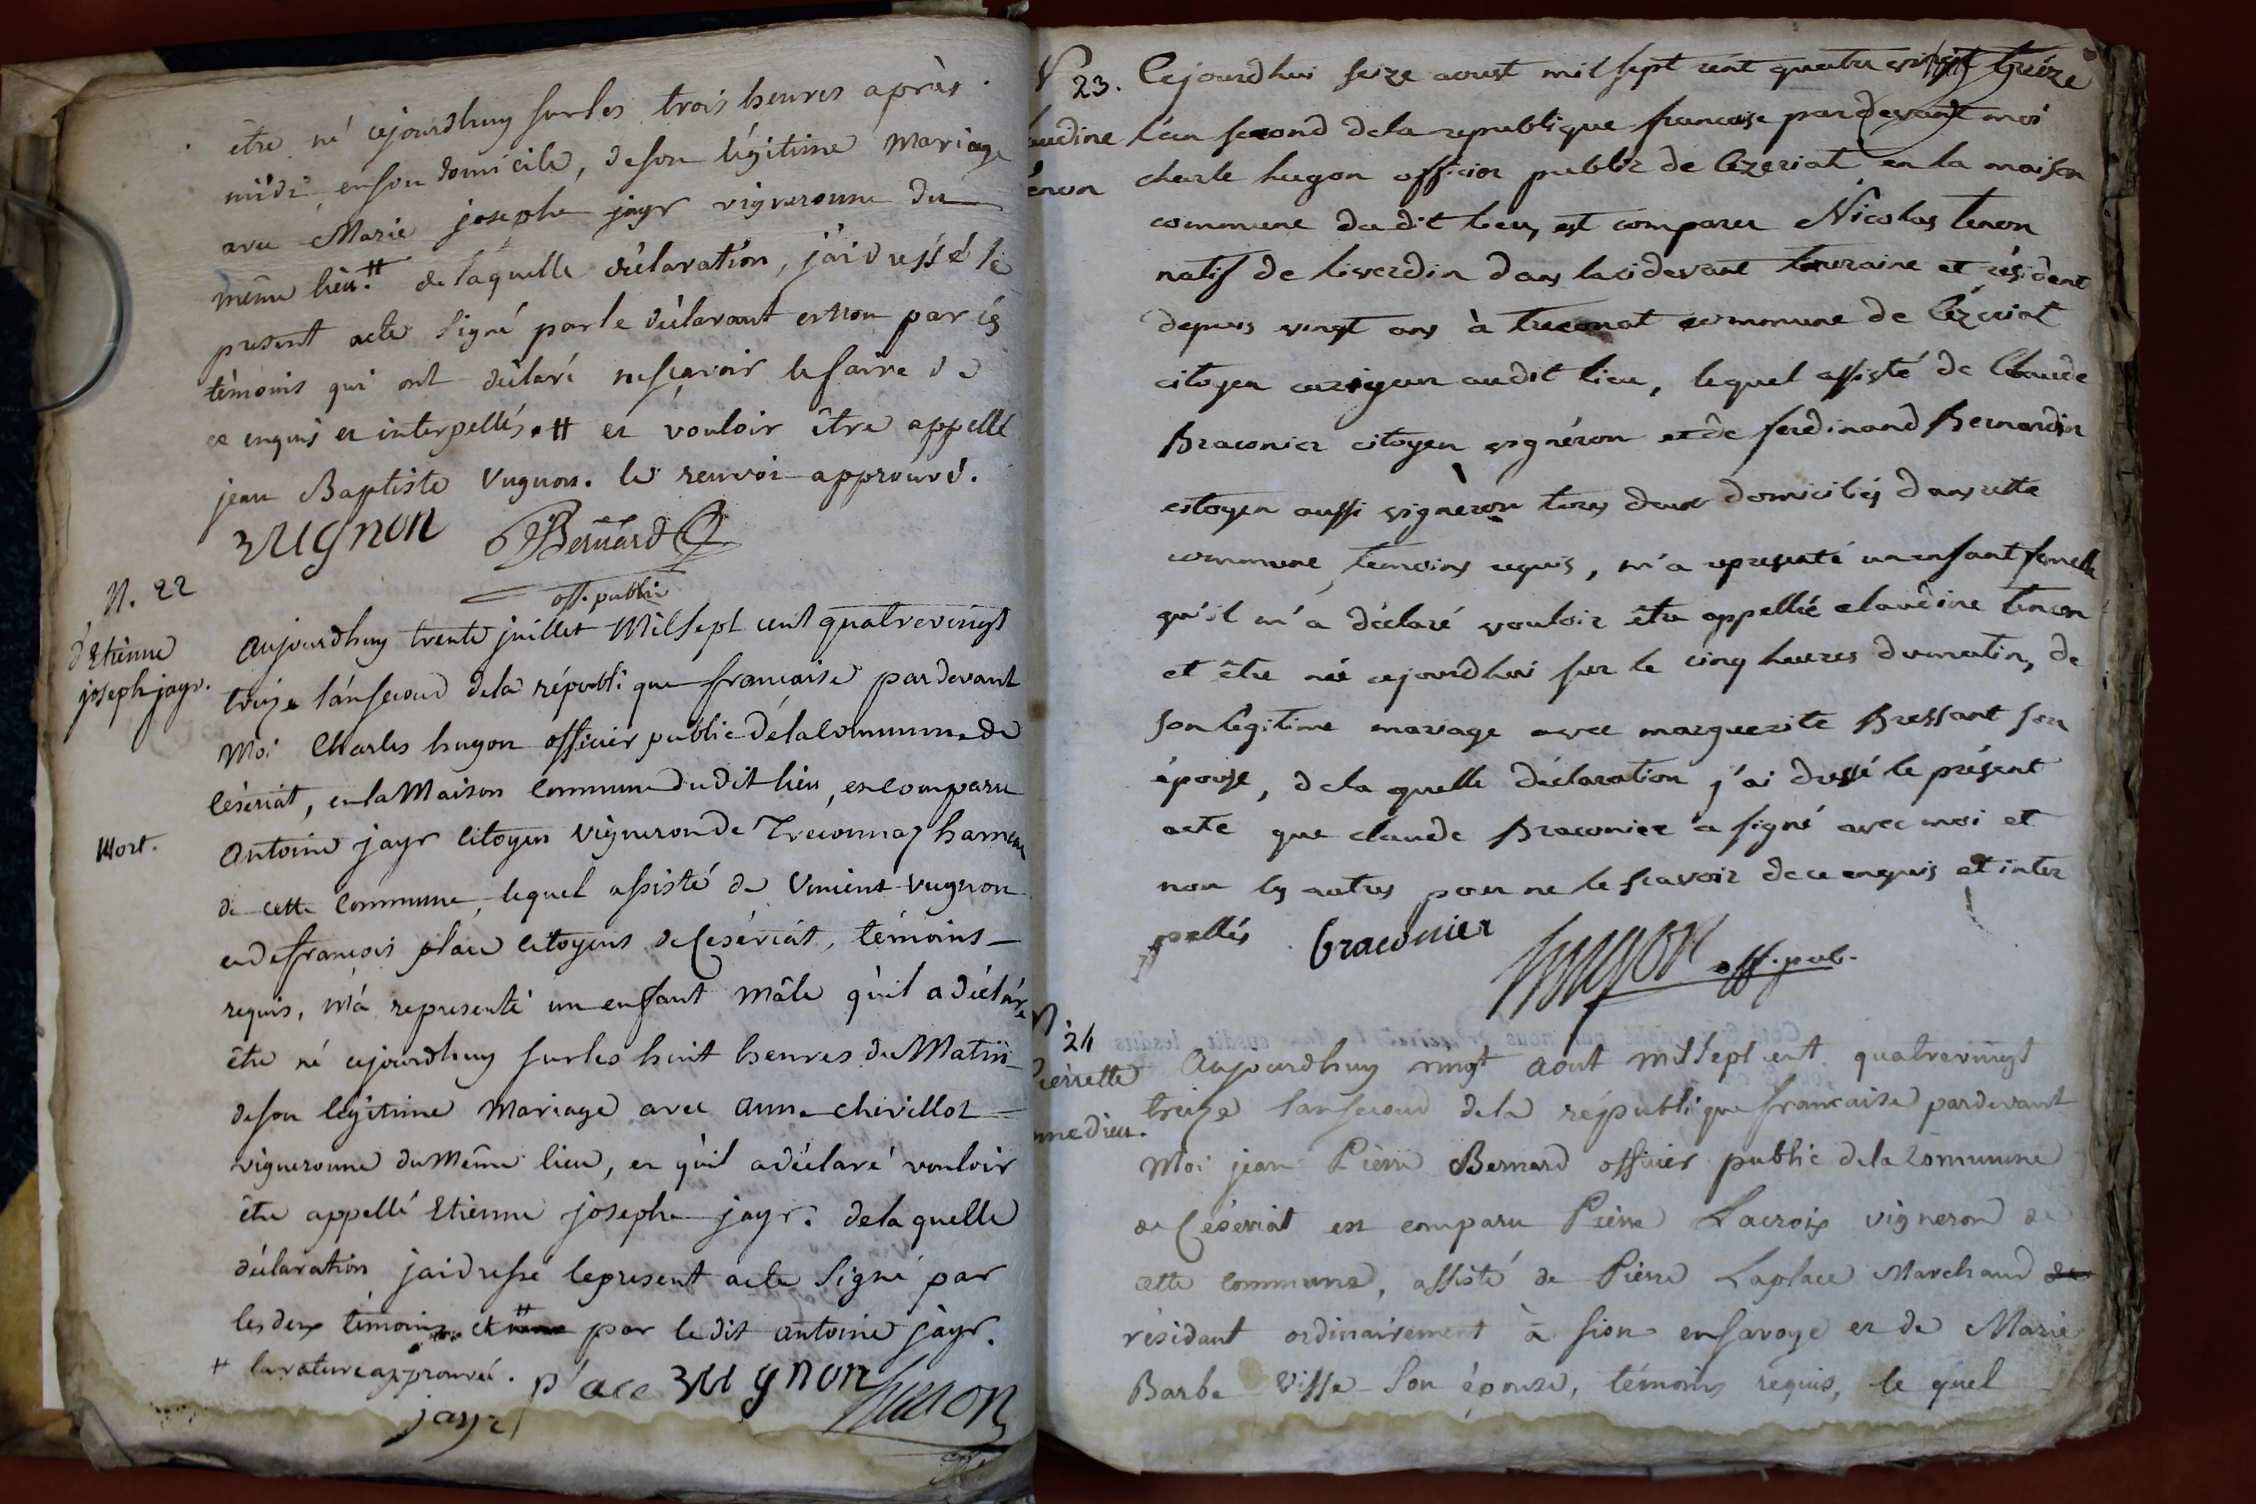 être né cejourdhuy sur les trois heures après
midi, en son domicile, de son légitime mariage
avec Marie josephe jayr vigneronne du
même lieu.# de laquelle déclaration, j'ai dressé le
present acte signé par le déclarant et non par les
témoins qui ont déclaré ne sçavoir le faire de
ce enquis et interpellés. # et vouloir être appellé
jean Baptiste Vugnon. le renvoi approuvé.
vugnon Bernard
off. public
N. 22
d'Etienne
joseph jayr.
Mort.
Aujourdhuy trente juillet Mil Sept cent quatrevingt
treize l'an second de la républi que francaise pardevant
Moi Charles hugon officier public de la Commune de
Céseriat, en la Maison Commune du dit lieu, est comparu
Antoine jayr Citoyen vigneron de Treconnaz hameau
de cette Commune, lequel assisté de Vincent Vugnon
et de francois place Citoyens de Céseriat, témoins
requis, m'a representé un enfant mâle qu'il a déclaré
être né cejourdhuy sur les huit heures du Matin
de son légitime Mariage avec Anne chevillot
vigneronne du Même lieu, et qu'il a déclaré vouloir
être appellé Etienne josephe jayr. de la quelle
déclaration jai dressé le present acte Signé par
les deux témoins et par le dit antoine jayr.
# la rature approuvée. place vugnon hugon
jayr
off.
N
23. Cejourdhui seize aoust mil sept cent quatre vingt treize
laudine l'an second de la republique francaise pardevant moi
enon charle hugon officier public de Cézeriat en la maison
commune du dit lieu, est comparu Nicolas tenon
natif de liverdin dans la cidevant touraine et résident
depuis vingt ans à treconat commune de Cézeriat
citoyen audit lieu, lequel assisté de Claude
Braconier citoyen vignéron et de ferdinand Bernardin
citoyen aussi vigneron tous deux domiciliés dans cette
commune, temoins requis, m'a representé un enfant femelle
qu'il m'a déclaré vouloir être appellée claudine tenon
et être née cejourdhui sur le cinq heures du matin, de
son légitime mariage avec marguerite Bressant son
épouse, de la quelle déclaration j'ai dressé le présent
acte que claude Braconier a signé avec moi et
non les autres pour ne le scavoir de ce enquis et inter
pellés braconier hugon off. pub.
N
24
Pierrette
nnedieu.
Aujourdhuy vingt Aout mil Sept cent quatrevingt
treize l'an second de la républi que francaise pardevant
Moi jean Pierre Bernard officier public de la Commune
de Céseriat est comparu Pierre Lacroix vigneron de
cette Commune, assisté de Pierre Laplace Marchand
résidant ordinairement à sion en savoye et de Marie
Barbe Visse son épouse, témoins requis, le quel